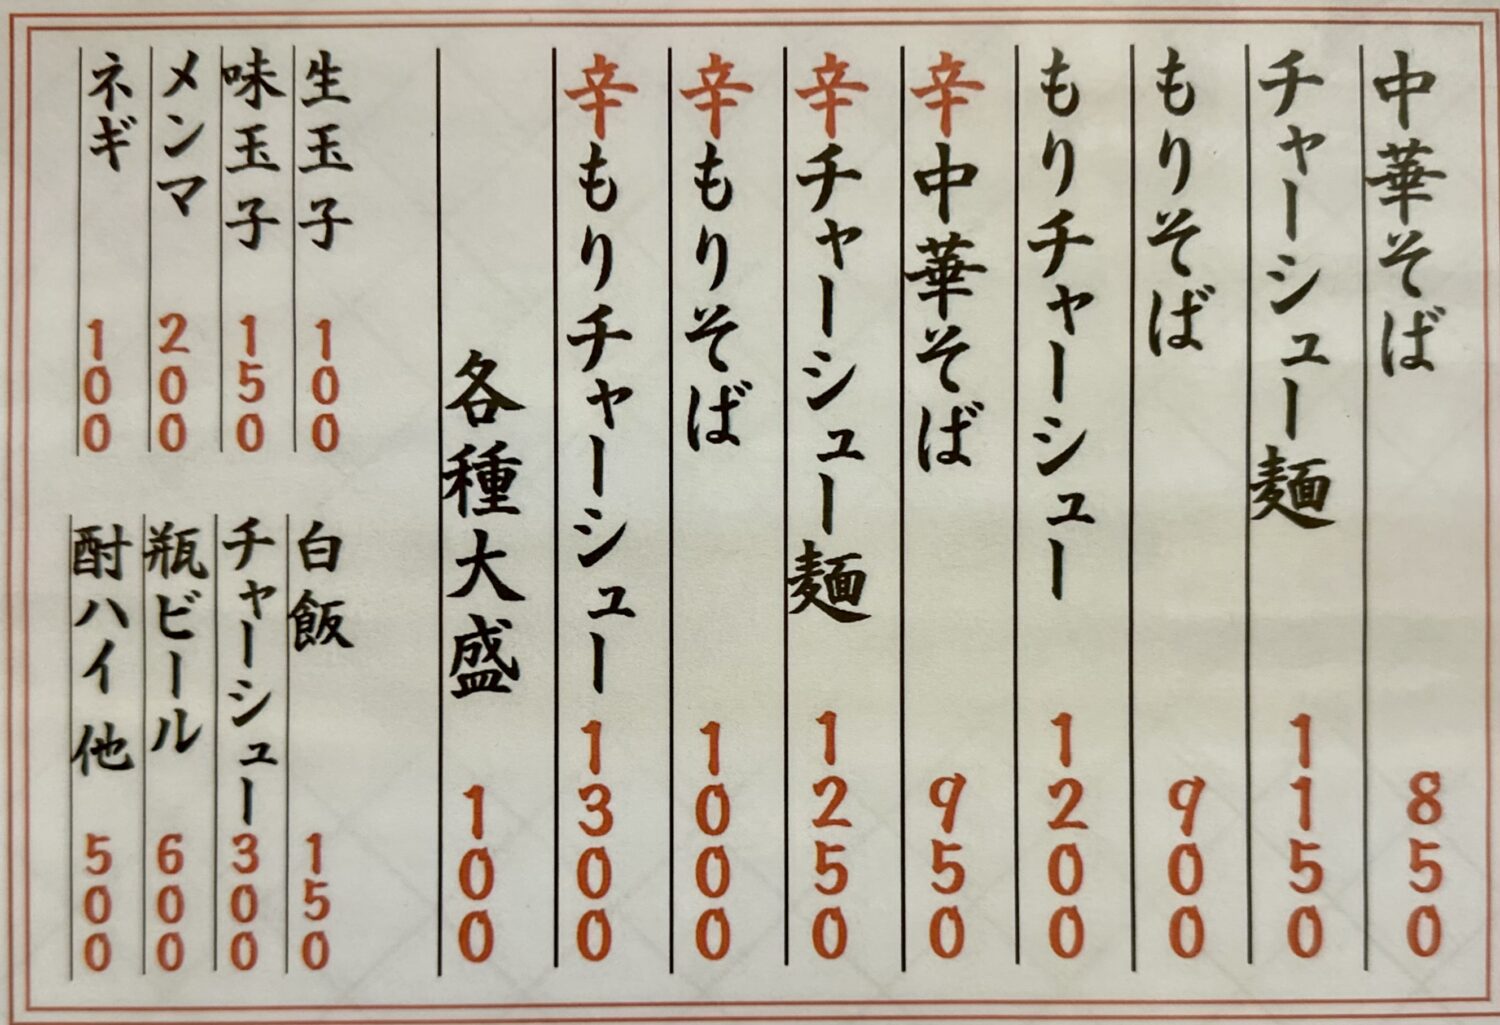 中華そば 850
チャーシュー麺 1150
もりそば 900
もりチャーシュー 1200
辛中華そば 950
辛チャーシュー麺 1250
辛もりそば 1000
辛もりチャーシュー 1300
各種大盛 100
生玉子 100
味玉子 150
メンマ 200
ネギ 100
白飯 150
チャーシュー 300
瓶ビール 600
酎ハイ他 500